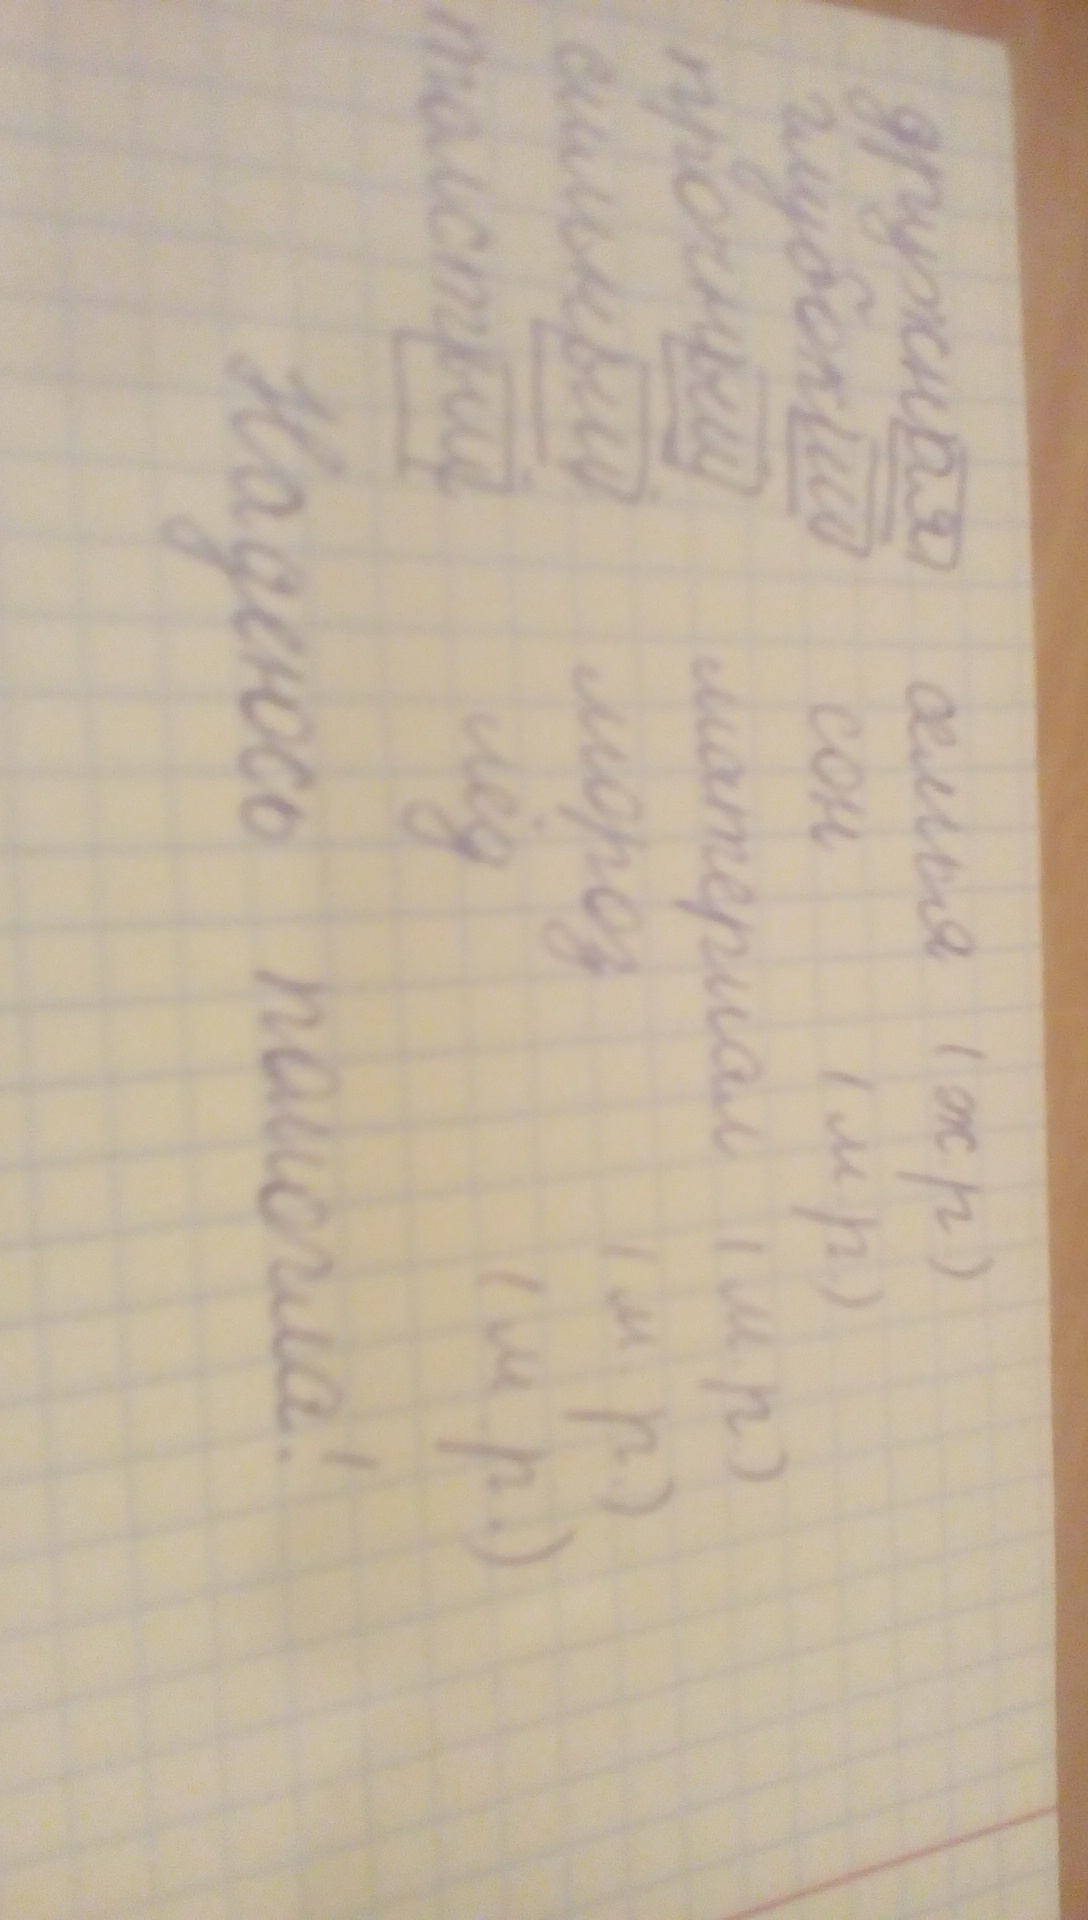 дружная семья (ж р)
глубокий сон (м р.)
прочный материал (м. р)
сильный мороз (м. р.)
толстый лёд (м р.)
Надеюсь помогла!